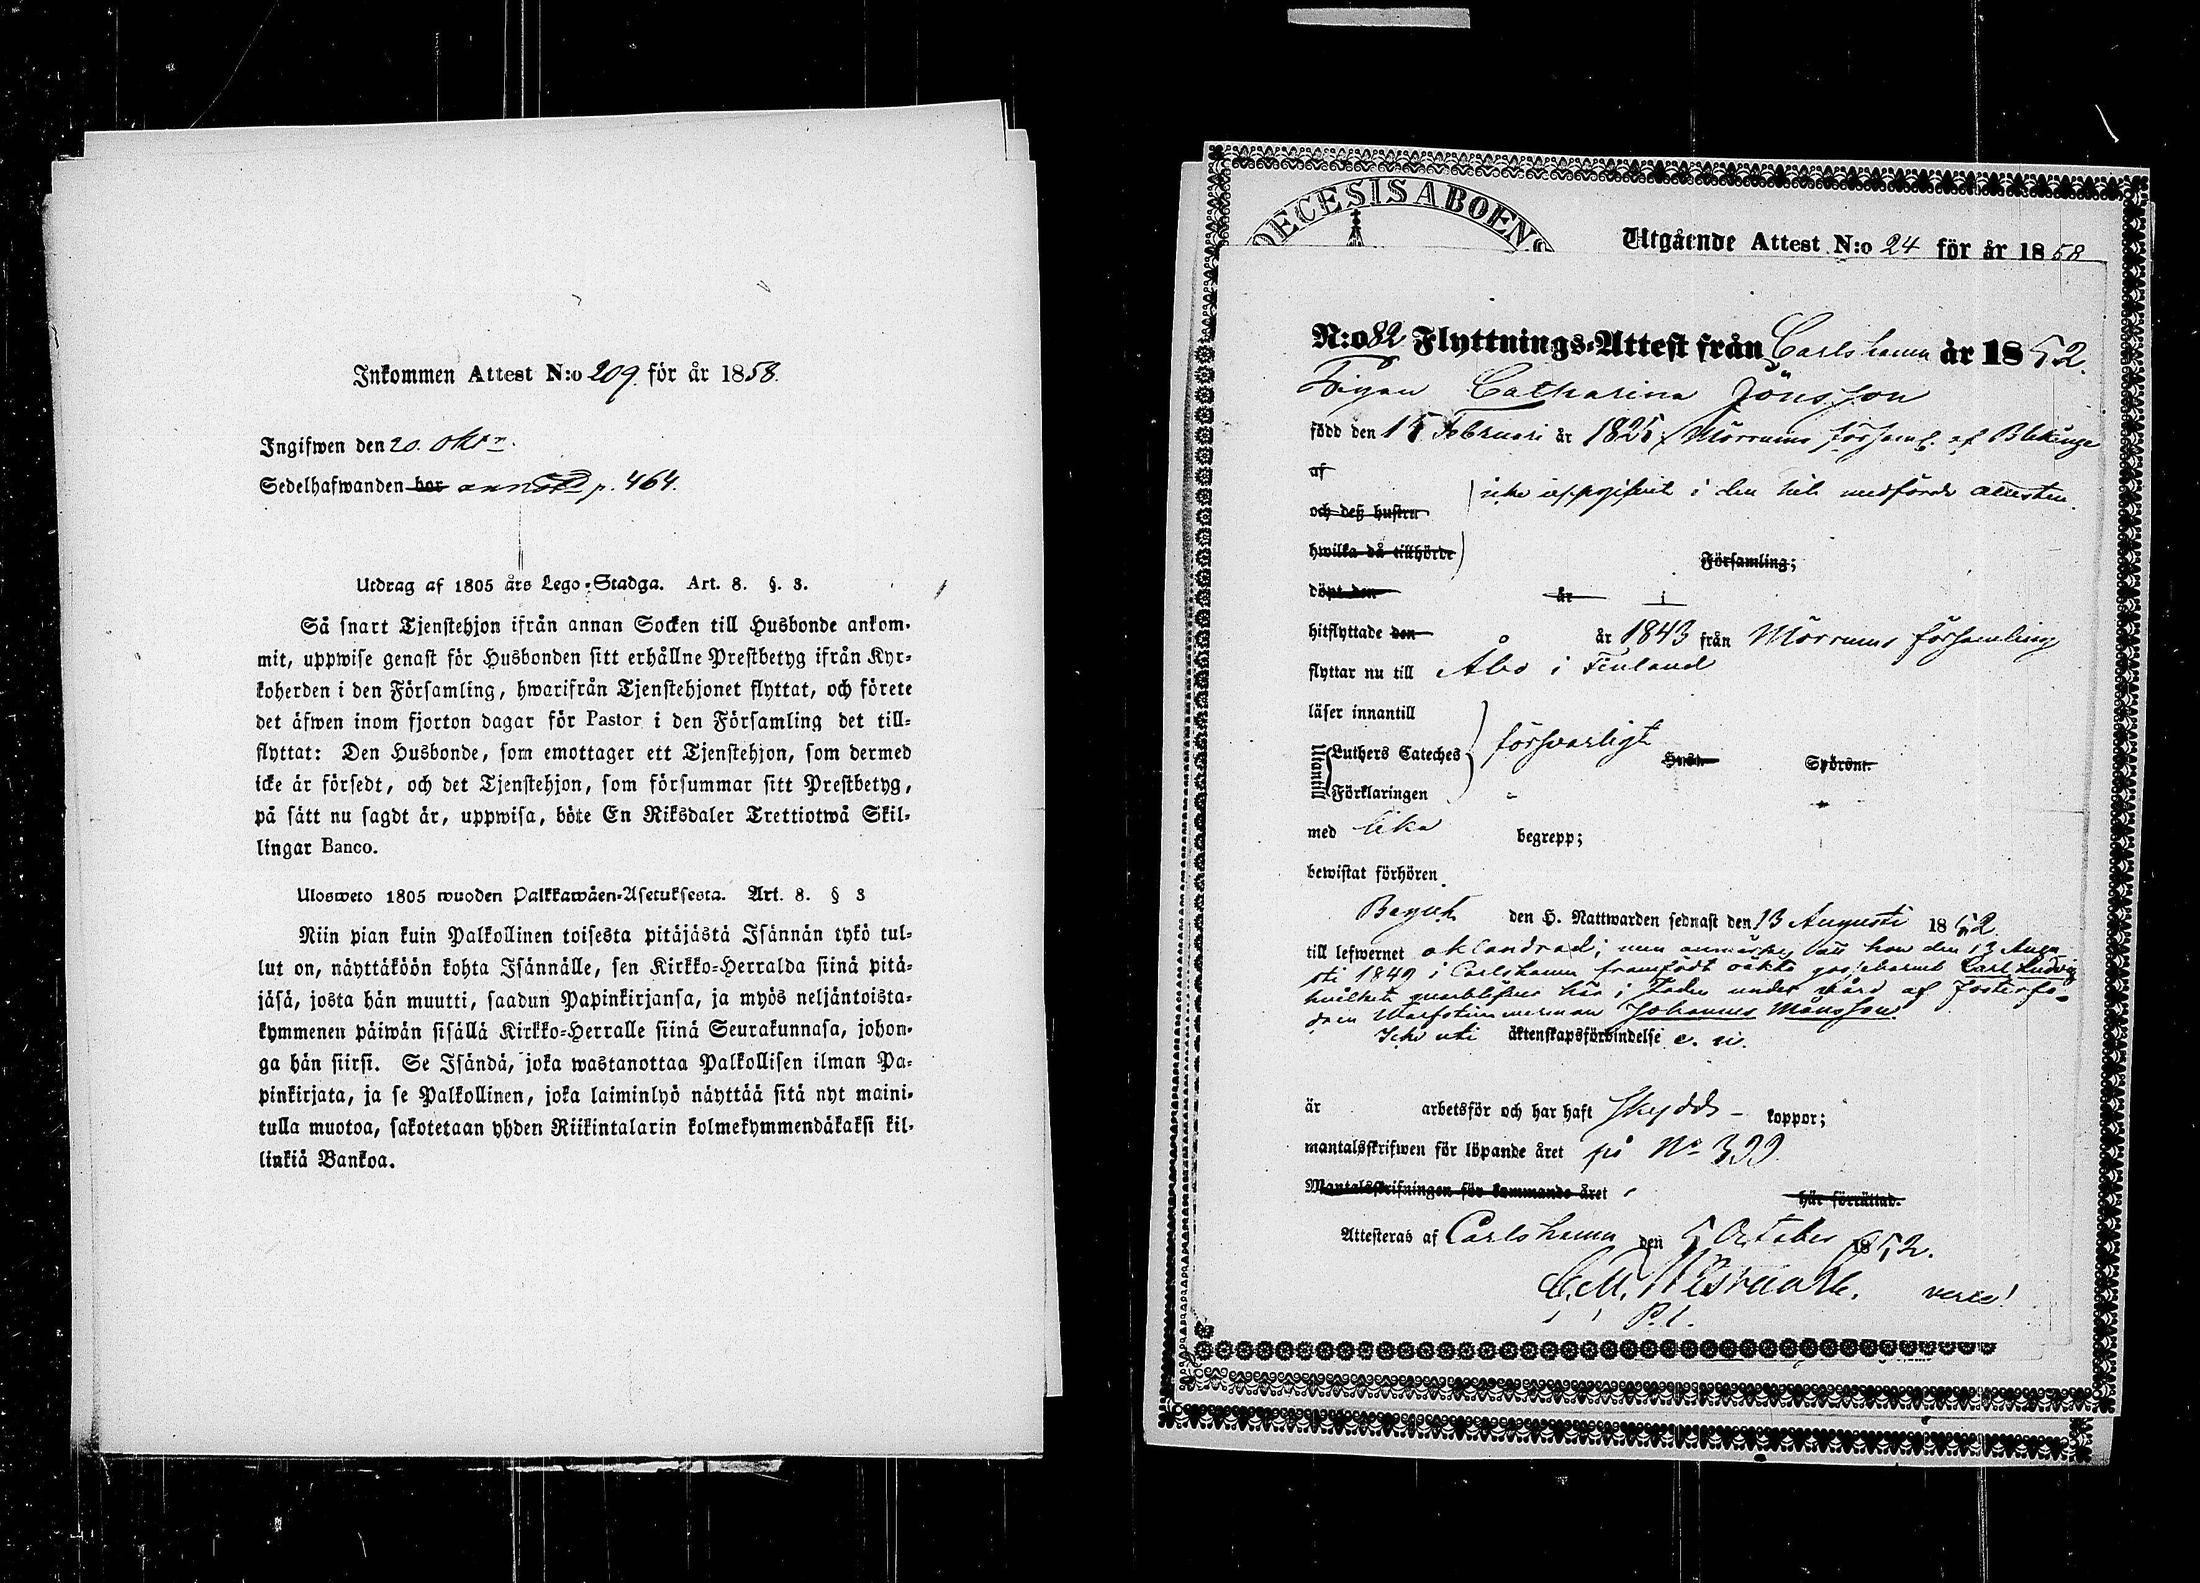 Inkommen Attest N:o 209. för år 1858.
Ingifwen den 20. oktr.
Sedelhafwanden bor annotd p. 464.
Utdrag af 1805 års Lego-Stadga. Art. 8. §. 3.
Så snart Tjenstehjon ifrån annan Socken till Husbonde ankom-
mit, uppwise genast för Husbonden sitt erhållne Prestbetyg ifrån Kyr-
koherden i den Församling, hwarifrån Tjenstehjonet flyttat, och förete
det äfwen inom fjorton dagar för Pastor i den Församling det till-
flyttat: Den Husbonde, som emottager ett Tjenstehjon, som dermed
icke är försedt, och det Tjenstehjon, som försummar sitt Prestbetyg,
på sätt nu sagdt är, uppwisa, böte En Riksdaler Trettiotwå Skil-
lingar Banco.
Ulosweto 1805 wuoden Palkkawäen-Asetuksesta. Art. 8. § 3
Niin pian kuin Palkollinen toisesta pitäjästä Isännän tykö tul-
lut on, näyttäköön kohta Isännälle, sen Kirkko-Herralda siinä pitä-
jäsä, josta hän muutti, saadun Papinkirjansa, ja myös neljäntoista-
kymmenen päiwän sisällä Kirkko-Herralle siinä Seurakunnasa, johon-
ga hän siirsi. Se Isändä, joka wastanottaa Palkollisen ilman Pa-
pinkirjata, ja se Palkollinen, joka laiminlyö näyttää sitä nyt maini-
tulla muotoa, sakotetaan yhden Riikintalarin kolmekymmendäkaksi kil-
linkiä Bankoa.
DECESIS ABOENS
Utgående Attest N:o 24 för år 1858
N:o 82 Flyttnings-Attest från Carlshamn år 1852.
Pigan Catharina Jönsson
född den 15 Februari år 1825 i Mörrums församl. af Blekinge
af
icke uppgifvet i den hit medförde attesten
och deß hustru
hwilka då tillhörde Församling;
döpt den år i
hitflyttade den år 1843 från Mörrums församling
flyttar nu till Åbo i Finland
läser innantill
utantill Luthers Cateches försvarligt Hust. Spörsm.
Förklaringen
med lika begrepp;
bewistat förhören
Begick den H. Nattwarden sednast den 13 Augusti 1852
till lefwernet oklandrad; men anmärkes att hon den 13 Augu
sti 1849 i Carlshamn framfödt oäkta gossebarnet Carl Ludvig
hvilket qvarblifver här i staden under vård af fosterfa-
dren Warfstimmerman Johannes Månsson.
Icke uti äktenskapsförbindelse
är arbetsför och har haft skydds- koppor;
mantalsskrifwen för löpande året på No 399
Mantalsskrifningen för kommande året här förrättad.
Attesteras af Carlshamn den 5 October 1852.
P. l.
verte!